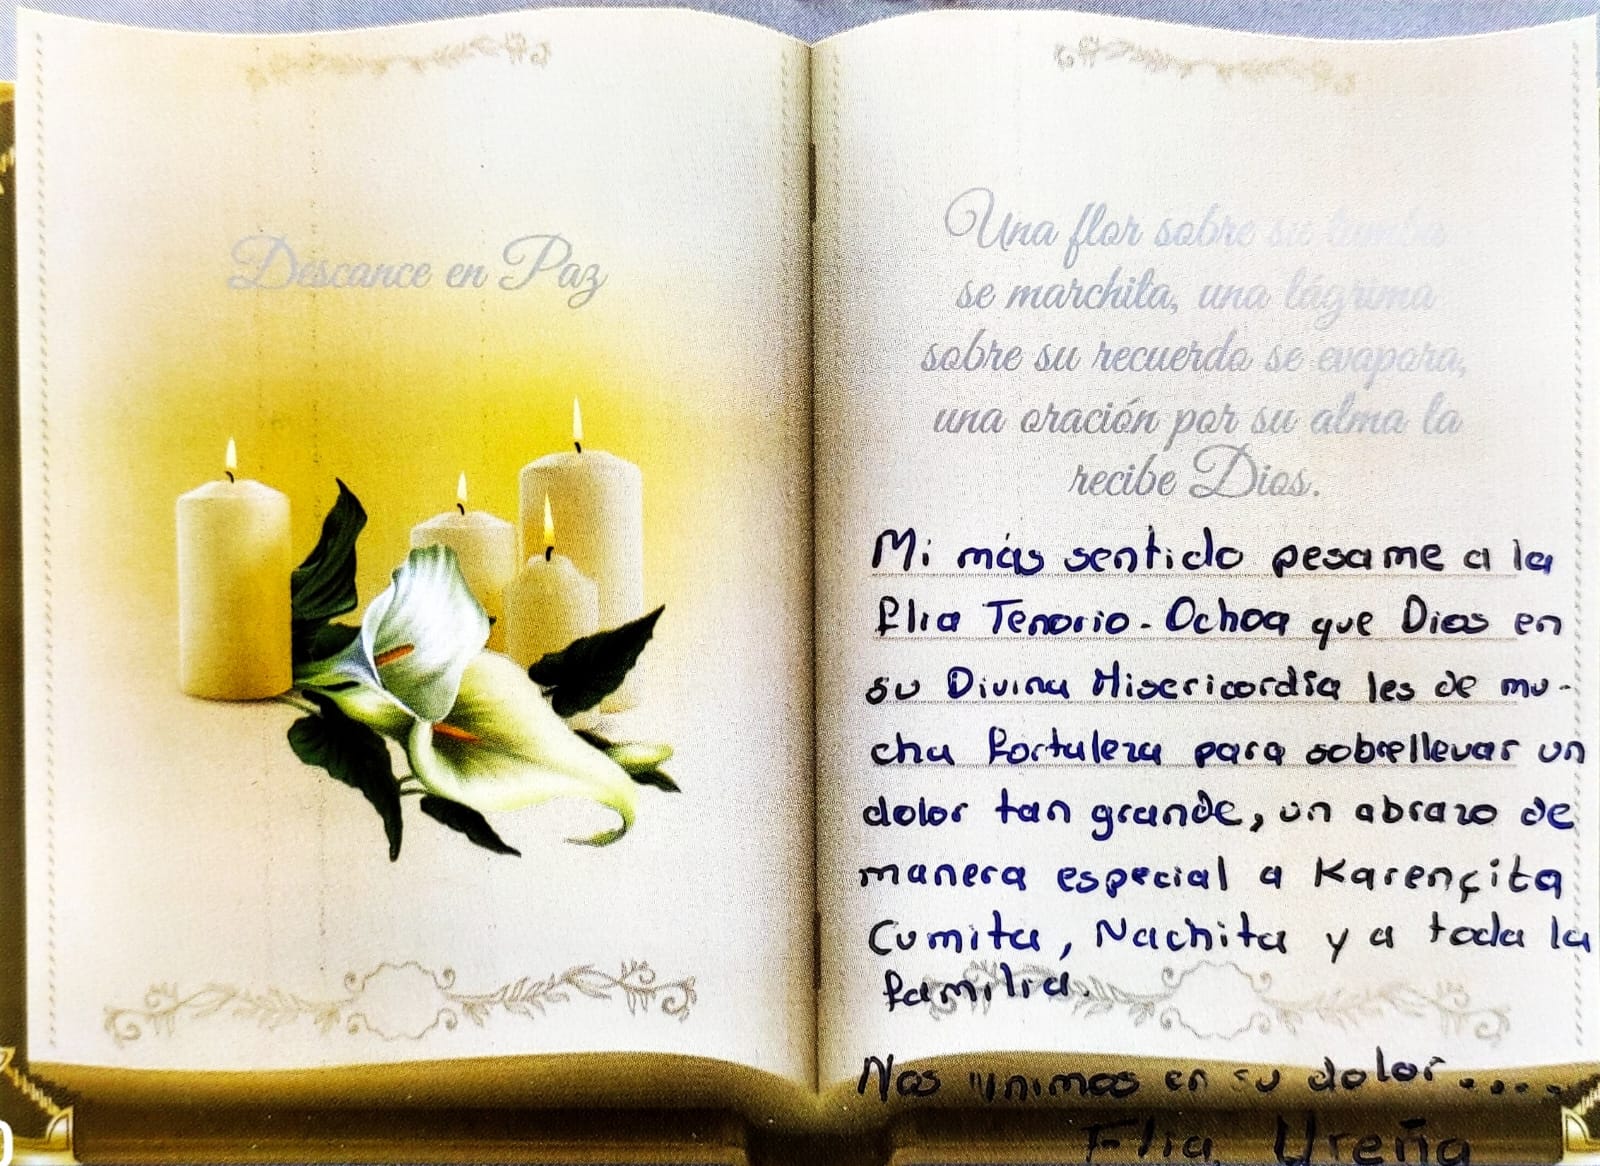 Descance en Paz
Una flor sobre su tumba
se marchita, una lágrima
sobre su recuerdo se evapora,
una oración por su alma la
recibe Dios.
Mi más sentido pesame a la
flia Tenorio - Ochoa que Dios en
su Divina Misericordia les de mu-
cha fortaleza para sobrellevar un
dolor tan grande, un abrazo de
manera especial a Karencita
Cumita, Nachita y a toda la
familia.
Nos unimos en su dolor.....
Flia. Ureña